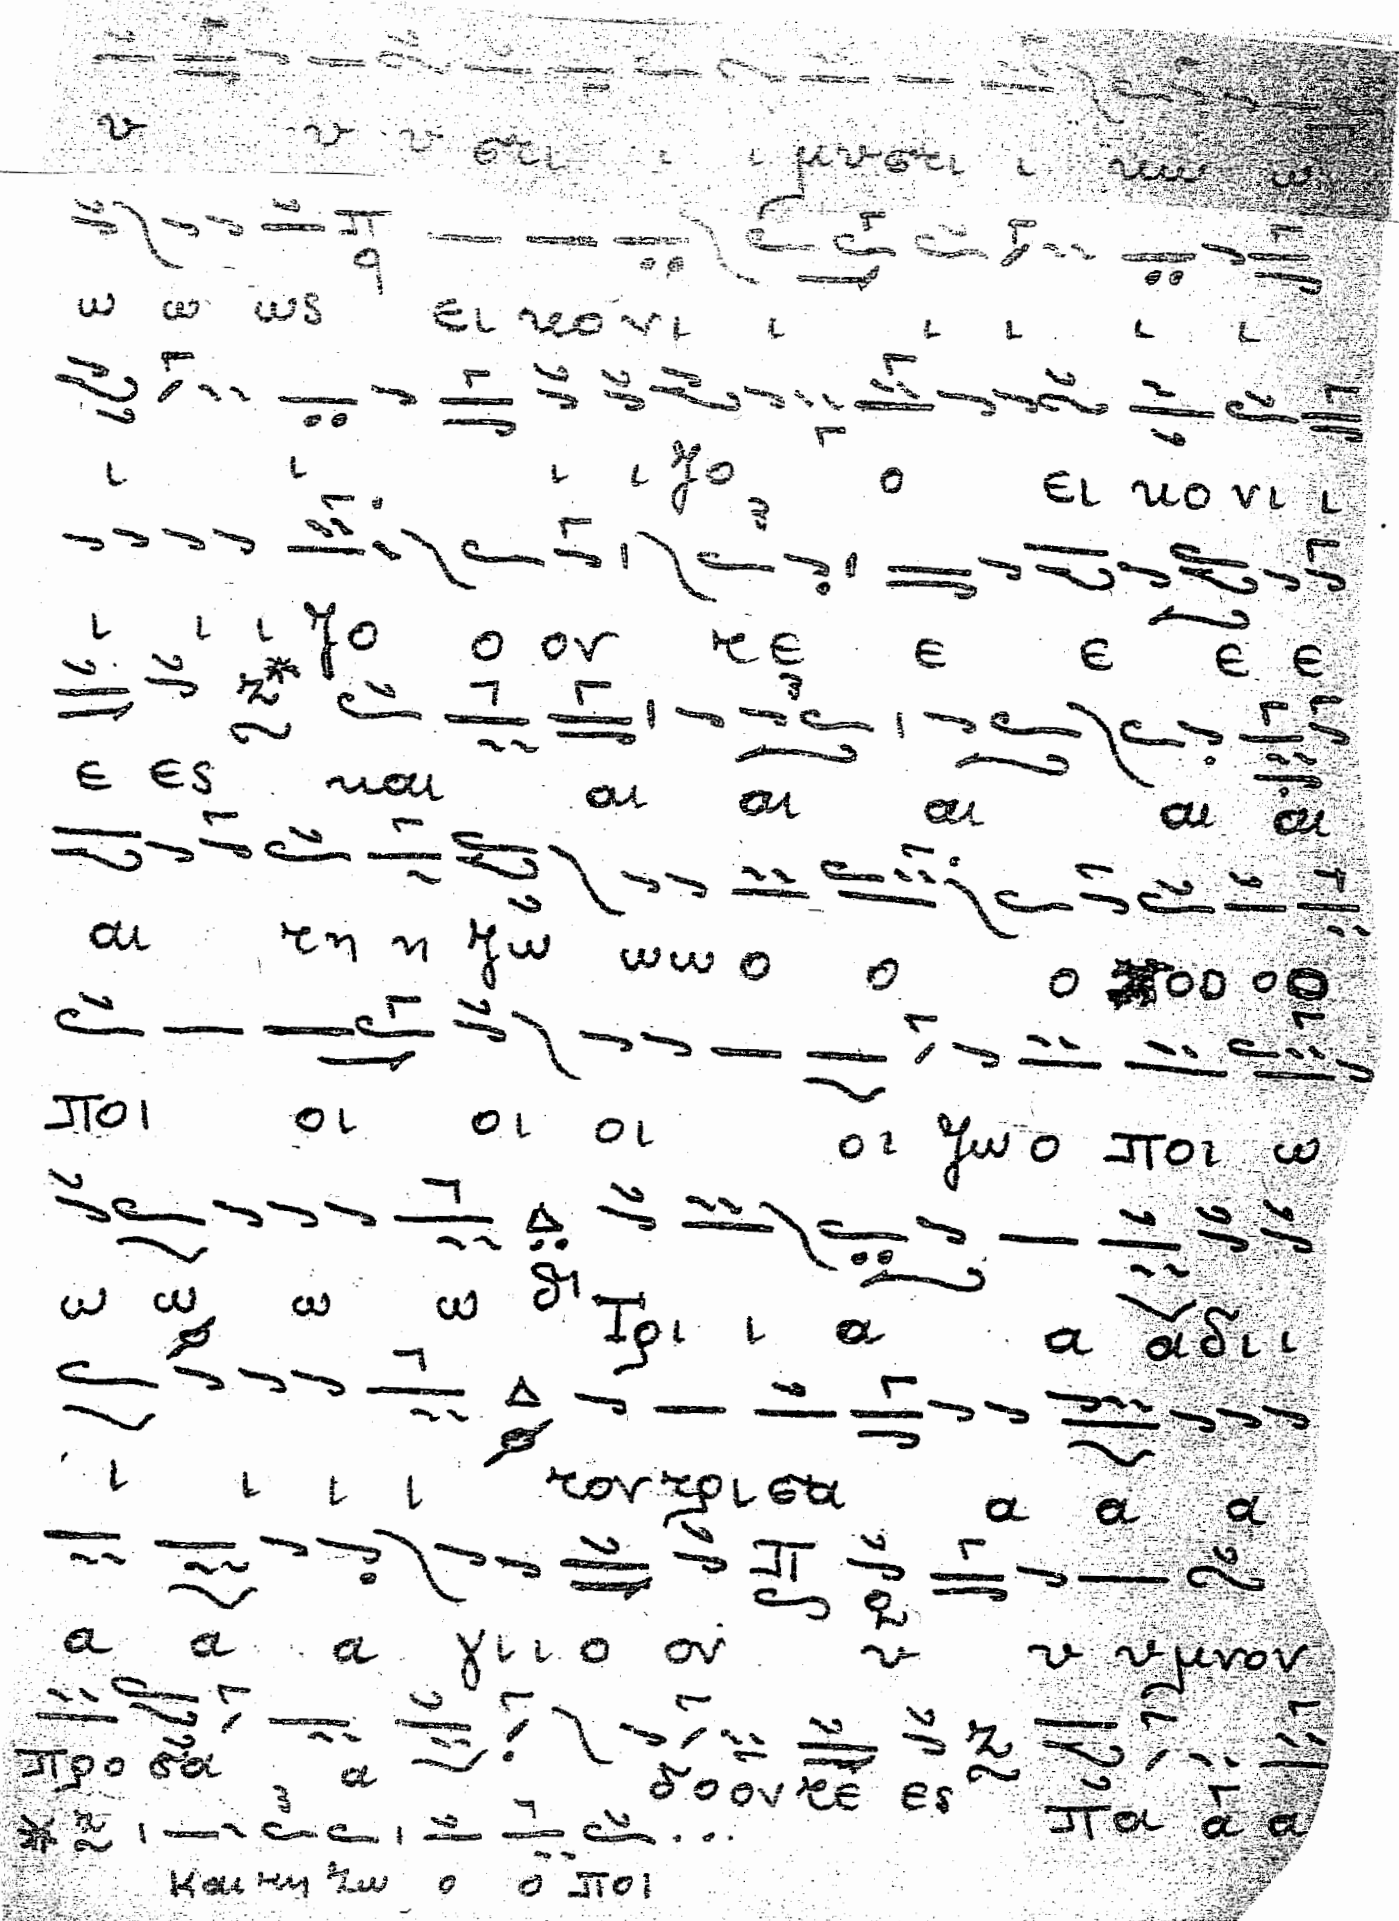 υ υ υ στι ι ι μυστι ι κω ω
ω ω ως ει κο νι ι ι ι ι ι
ι ι ι ι ζο ο ει κο νι ι
ι ι ι ζο ο ον τε ε ε ε ε
ε ες και αι αι αι αι αι
αι τη η ζω ωω ο ο ο οο οο
ποι οι οι οι οι ζωο ποι ω
ω ω ω ω Δι Τρι ι α α αδι ι
ι ι ι ι τον τρι σα α α α
α α α γι ι ο ον υ υ υμνον
προ σα α δο ον τε ες πα α α
και τη ζω ο ο ποι